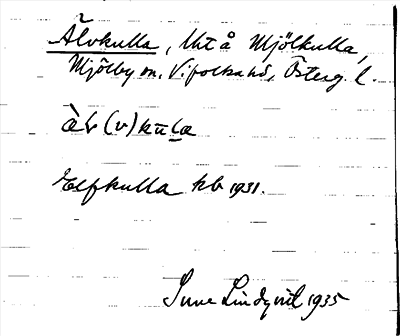 Älvkulla, Lht å Mjölkulla,
Mjölby sn, Vifolka hd, Österg. l.
àlv(v)kula
Elfkulla kb 1931.
Sune Lindqvist 1935